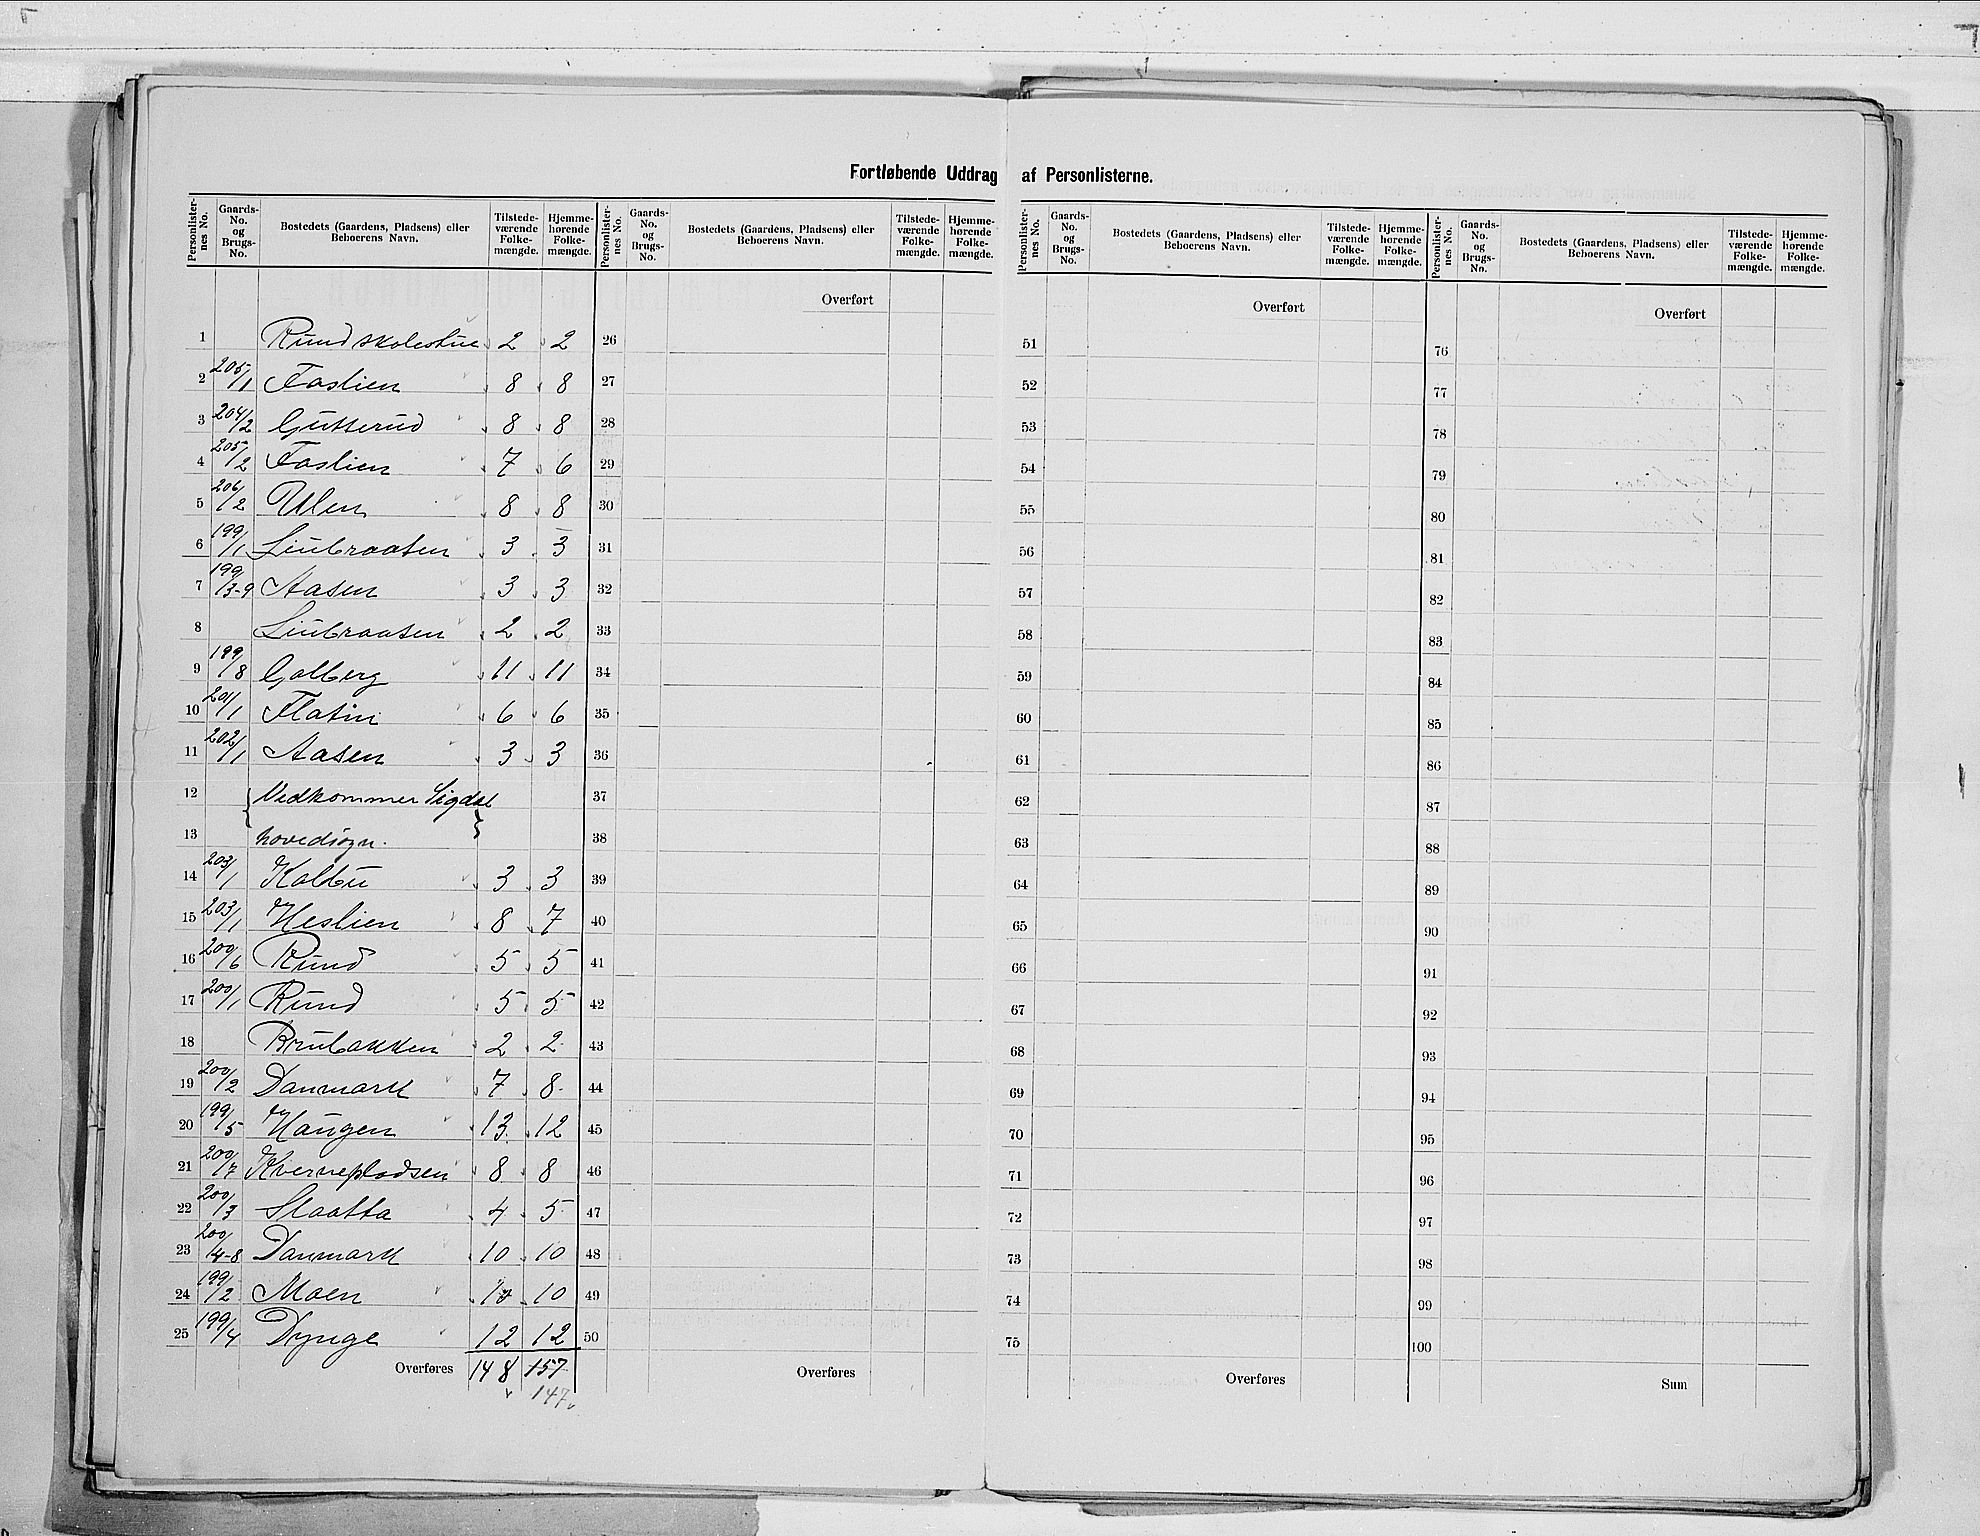 Fortløbende Uddrag af Personlisterne.
Personlister-nes No. Gaards-No. og Brugs-No. Bostedets (Gaardens, Pladsens) eller Beboerens Navn. Tilstede-værende Folke-mængde. Hjemme-hørende Folke-mængde. Personlister-nes No. Gaards-No. og Brugs-No. Bostedets (Gaardens, Pladsens) eller Beboerens Navn. Tilstede-værende Folke-mængde. Hjemme-hørende Folke-mængde. Personlister-nes No. Gaards-No. og Brugs-No. Bostedets (Gaardens, Pladsens) eller Beboerens Navn. Tilstede-værende Folke-mængde. Hjemme-hørende Folke-mængde. Personlister-nes No. Gaards-No. og Brugs-No. Bostedets (Gaardens, Pladsens) eller Beboerens Navn. Tilstede-værende Folke-mængde. Hjemme-hørende Folke-mængde.
Overført Overført Overført
1 Rundskolestue 2 2 26 51 76
2 205/1 Faslien 8 8 27 52 77
3 204/2 Gutterud 8 8 28 53 78
4 205/2 Faslien 7 6 29 54 79
5 206/2 Ulen 8 8 30 55 80
6 199/1 Liubraaten 3 3 31 56 81
7 199/3-9 Aasen 3 3 32 57 82
8 Liubraaten 2 2 33 58 83
9 199/8 Golberg 11 11 34 59 84
10 201/1 Flatin 6 6 35 60 85
11 202/1 Aasen 3 3 36 61 86
12 Vedkommer Sigdal 37 62 87
13 hovedsogn. 38 63 88
14 203/1 Kolbu 3 3 39 64 89
15 203/1 Heslien 8 7 40 65 90
16 200/6 Rund 5 5 41 66 91
17 200/1 Rund 5 5 42 67 92
18 Brubakken 2 2 43 68 93
19 200/2 Danmark 7 8 44 69 94
20 199/5 Haugen 13 12 45 70 95
21 200/7 Kverneplodsen 8 8 46 71 96
22 200/3 Slaatta 4 5 47 72 97
23 200/4-8 Danmark 10 10 48 73 98
24 199/2 Moen 10 10 49 74 99
25 199/4 Dynge 12 12 50 75 100
Overføres 148 157 Overføres Overføres Sum
147